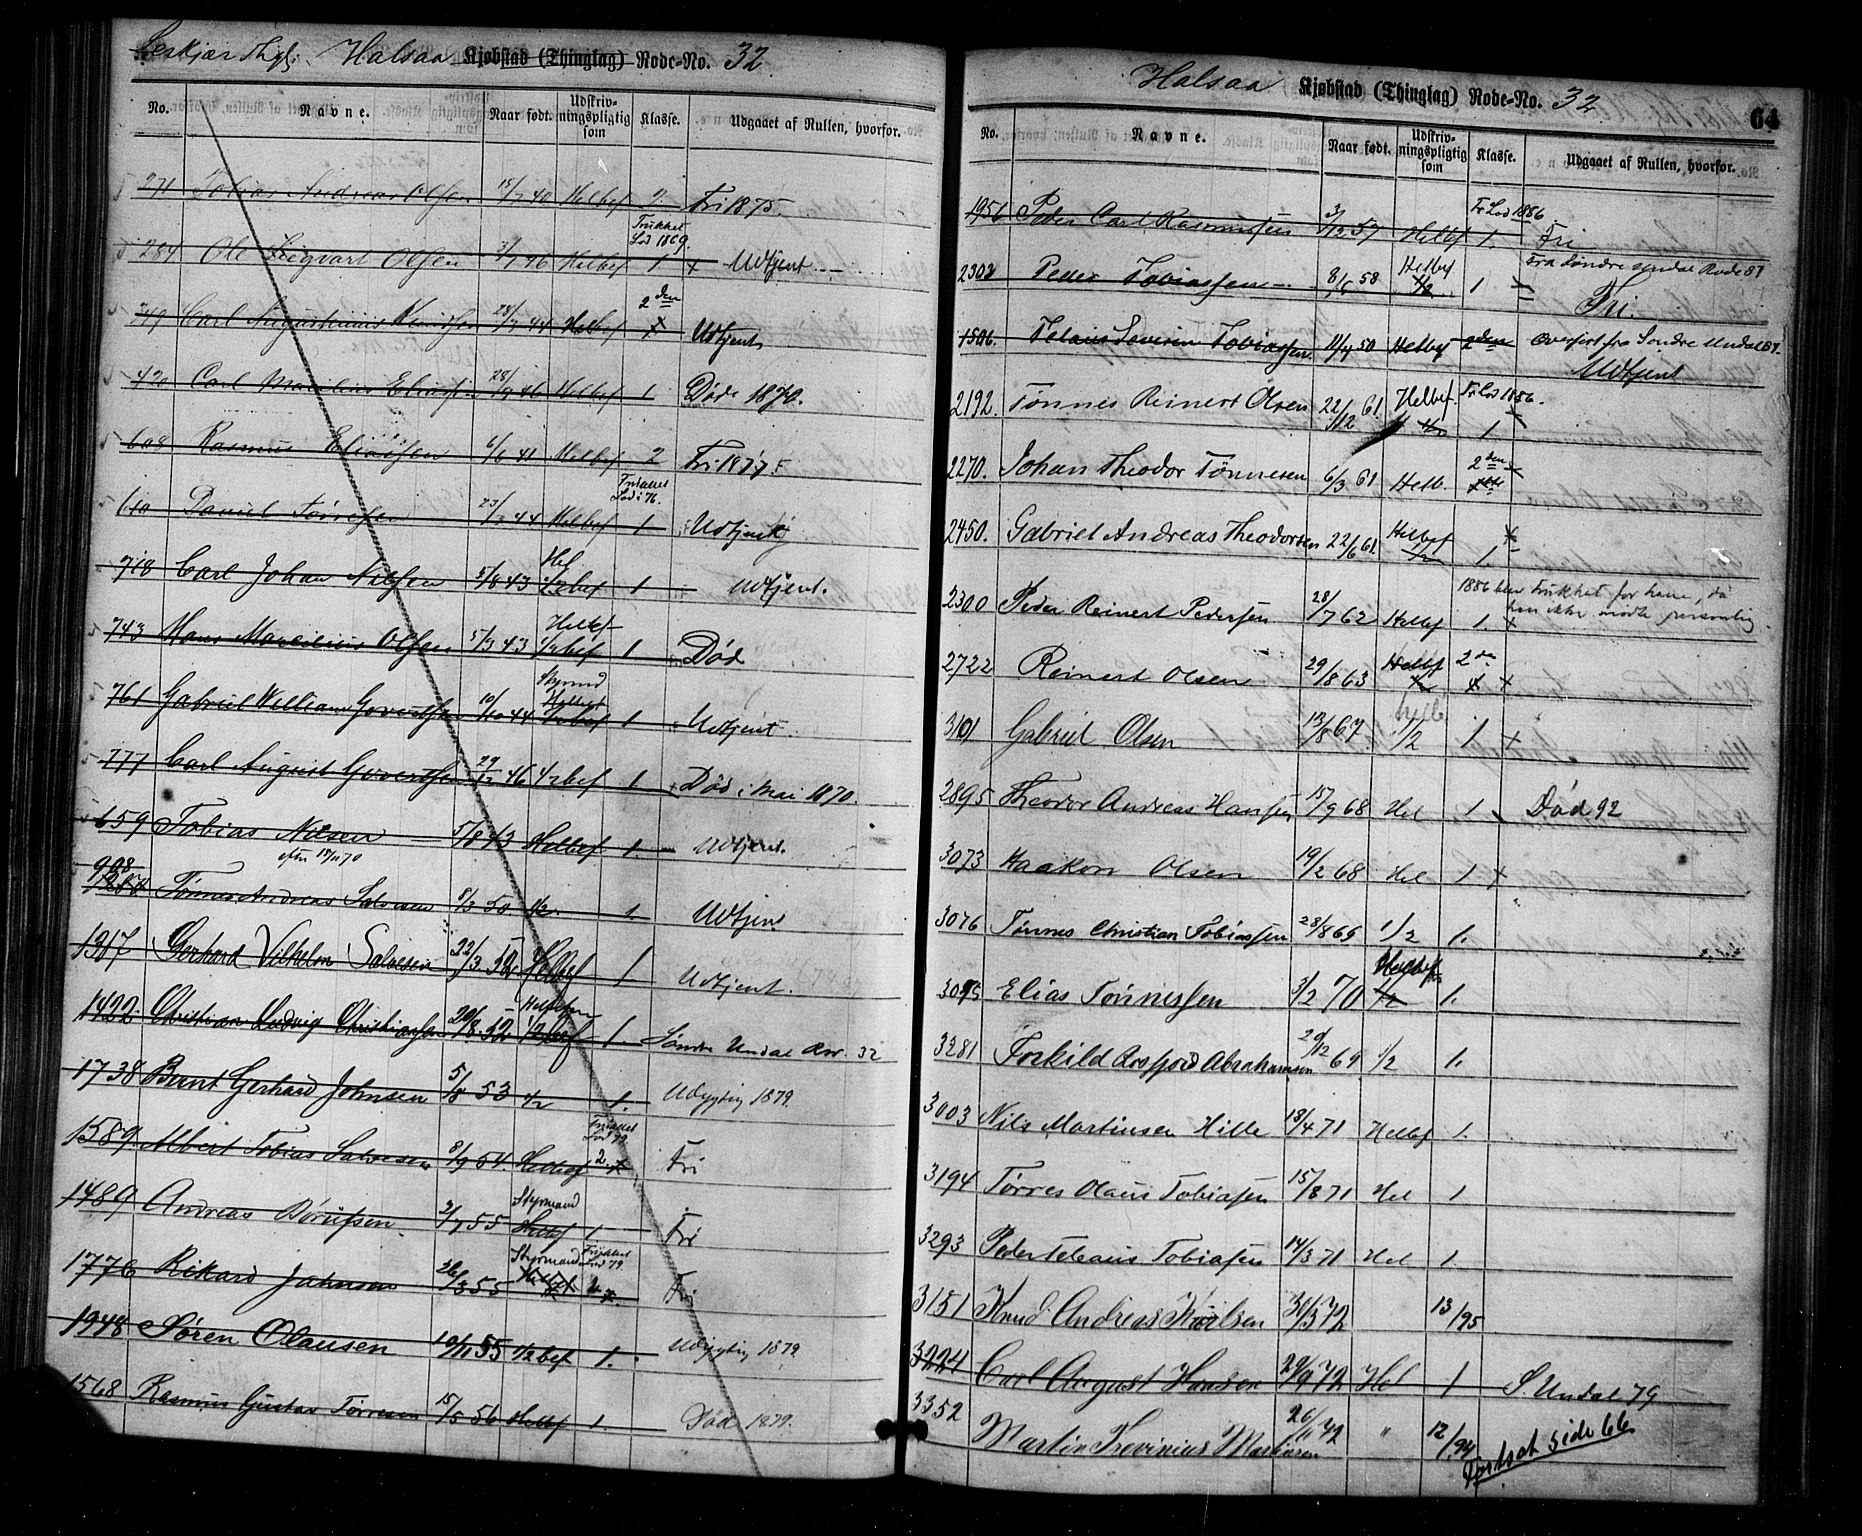 Halsaa Kjøbstad (Thinglag) Rode-No. 32
No. Navne. Naar født. Udskrivningspligtig som Klasse. Udgaaet af Rullen, hvorfor.
271 Tobias Andreas Olsen 15/7 40 Helbef 2. Fri 1875.
Trukket Lod 1869.
284 Ole Sigvart Olsen 46 Helbef 1 Udtjent
2den
349 Carl 44 Helbef Udtjent
420 Carl 46 Helbef 1 Døde 1870.
608 Rasmus Eliassen 6/6 41 Helbef 2 Fri 1877.
Lod i 76.
610 Daniel Tørresen 44 Helbef 1 Udtjent
Hel
718 Carl Johan Nilsen 5/8 43 1/2bef 1 Udtjent.
Helbef
743 Hans Marcilius Olsen 5/3 43 1/2bef 1 Død
761 Gabriel William Govertsen 10/10 44 1 Udtjent
777 Carl August Govertsen 29/12 46 1/2bef 1 Død i Mai 1870.
659 Tobias Nilsen 5/8 43 Helbef 1. Udtjent.
908
Tønnes Andreas Salvesen 8/3 50 1/2 1. Udtjent
1317 Gerhard Vilhelm Salvesen 22/3 52 Helbef 1 Udtjent.
1422 Christian Ludvig Christiansen 20/8 52 1/2bef 1. Søndre Undal 32
1738 Bernt Gerhard Johnsen 5/8 53 1/2 1. Udygtig 1879.
Lod 79.
1589 Albert Tobias Salvesen 8/9 54 Helbef 2 Fri
Styrmand
1489 Andreas 2/7 55 Helbef 1 Fri
Styrmand Lod 79.
1776 Rikard Johnson 26/3 55 Fri
1948 Søren Olausen 10/11 55 1/2bef 1. Udygtig 1879
1568 Rasmus Gustav Tørresen 15/5 56 Helbef 1. Død 1879.
Halsaa Kjøbstad (Thinglag) Rode-No. 32
64
No. Navne. Naar født. Udskrivningspligtig som Klasse. Udgaaet af Rullen, hvorfor.
Fr Lod 1886.
1956 Peder Carl Rasmussen 3/12 57 Helbef 1. Fri
Helbef Fra Søndre Undal Rode 87
2302 Peder Tobiassen 8/5 58 1/2 1 Fri.
1506. Severin Tobiassen 11/4 50 Helbef 2den Overført fra Søndre Undal 87.
Udtjent
Helbef. Fr Lod 1886.
2192. Tønnes Reinert Olsen 22/12 61. 1
2den
2270. Johan Theodor Tønnesen 6/3 61 Helb.
Helbef
2450. Gabriel Andreas Theodorsen 22/6 61. 1/2 1.
1886 blev trukket for ham, da
han ikke mødte personlig.
2300 Peder Reinert Pedersen 28/7 62 Helbef 1.
2722 Reinert Olsen 29/8 63 Helbef 2den
helb
3101 Gabriel Olsen 13/8 67 1/2 1.
2895 Theodor Andreas Hansen 15/9 68 Hel 1 Død 92
3073 Haakon Olsen 19/2 68 Hel 1
3076 Tønnes Christian Tobiassen 28/8 65 1/2 1.
Helbef
3095 Elias Tønnessen 3/2 70 1/2 1.
3281 Torkild Abrahamsen 29/12 69 1/2 1.
3003 Nils Martinsen Hille 18/4 71 Helbef 1.
3194 Tørres Olaus Tobiasen 15/8 71 Hel 1
3293 Peder Teleaus Tobiasen 14/3 71 Hel 1.
3151 Knud Andreas 31/3 72 13/95
3224 Carl August Hansen 29/9 72 Hel 1 S. Undal 79
3352 Martin Martinsen 26/11 72 " 12/94
Fortsat side 66